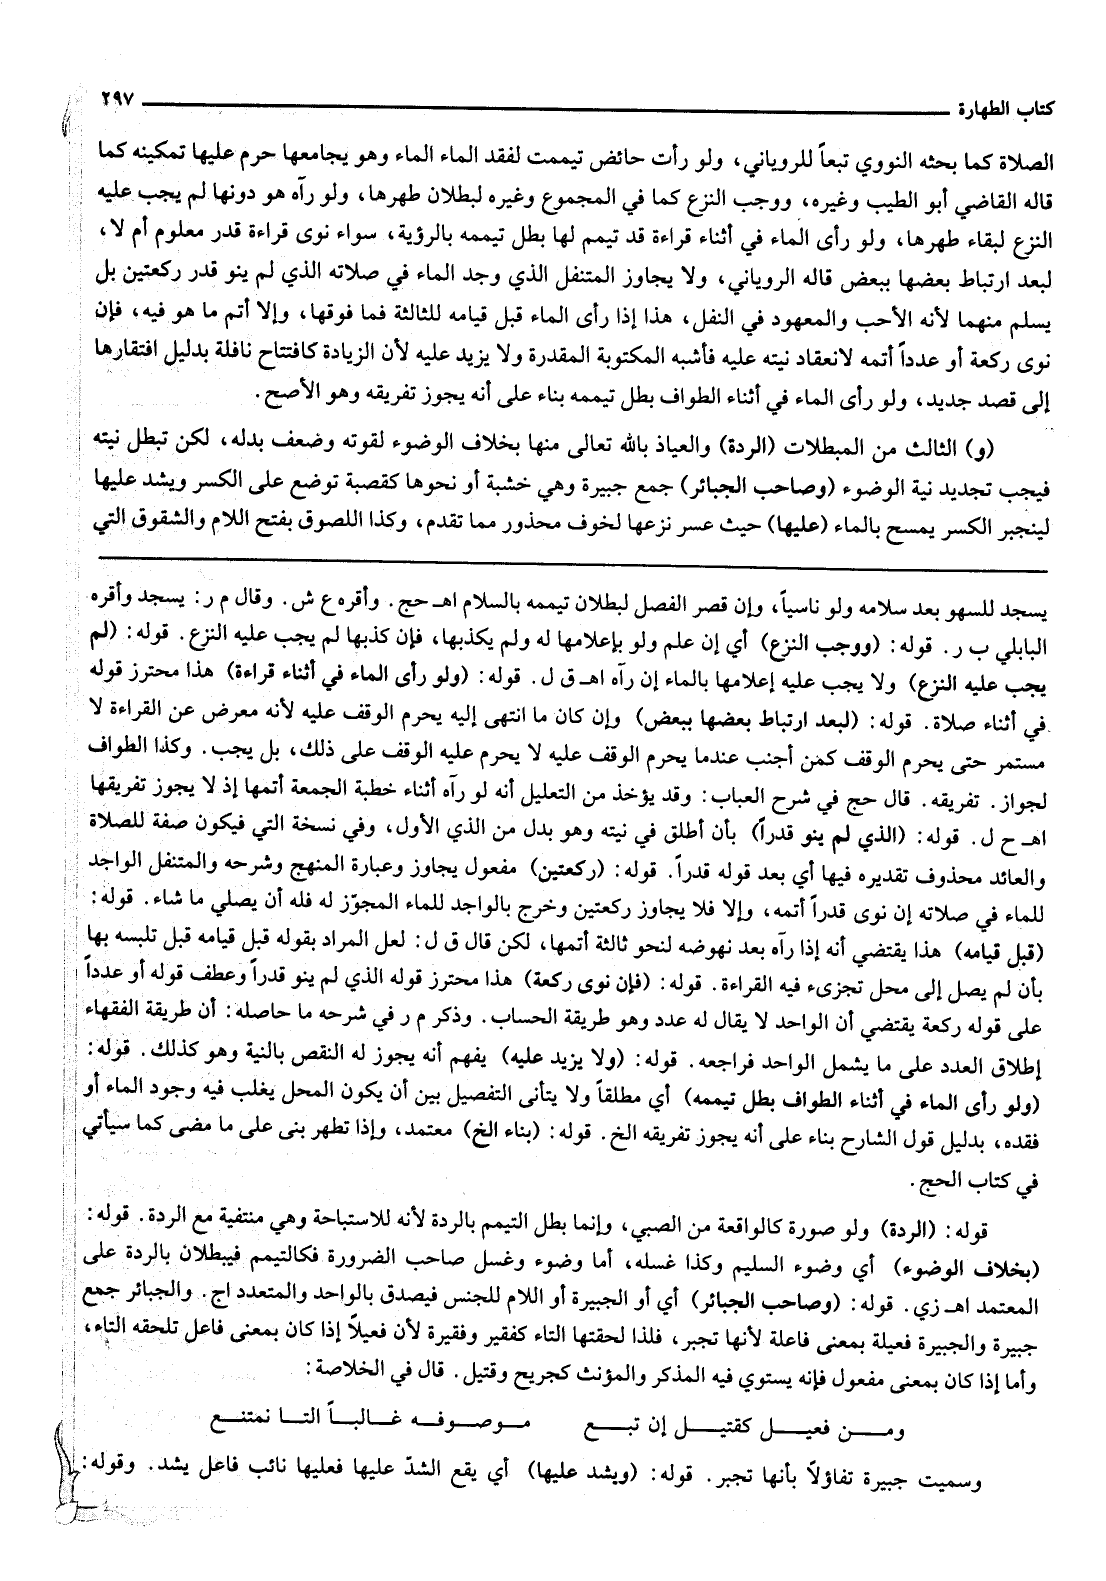 كتاب الطهارة ٢٩٧
الصلاة كما بحثه النووي تبعاً للروياني، ولو رأت حائض تيممت لفقد الماء الماء وهو يجامعها حرم عليها تمكينه كما
قاله القاضي أبو الطيب وغيره، ووجب النزع كما في المجموع وغيره لبطلان طهرها، ولو رآه هو دونها لم يجب عليه
النزع لبقاء طهرها، ولو رأى الماء في أثناء قراءة قد تيمم لها بطل تيممه بالرؤية، سواء نوى قراءة قدر معلوم أم لا،
لبعد ارتباط بعضها ببعض قاله الروياني، ولا يجاوز المتنفل الذي وجد الماء في صلاته الذي لم ينو قدر ركعتين بل
يسلم منهما لأنه الأحب والمعهود في النفل، هذا إذا رأى الماء قبل قيامه للثالثة فما فوقها، وإلا أتم ما هو فيه، فإن
نوى ركعة أو عدداً أتمه لانعقاد نيته عليه فأشبه المكتوبة المقدرة ولا يزيد عليه لأن الزيادة كافتتاح نافلة بدليل افتقارها
إلى قصد جديد، ولو رأى الماء في أثناء الطواف بطل تيممه بناء على أنه يجوز تفريقه وهو الأصح.
(و) الثالث من المبطلات (الردة) والعياذ بالله تعالى منها بخلاف الوضوء لقوته وضعف بدله، لكن تبطل نيته
فيجب تجديد نية الوضوء (وصاحب الجبائر) جمع جبيرة وهي خشبة أو نحوها كقصبة توضع على الكسر ويشد عليها
لينجبر الكسر يمسح بالماء (عليها) حيث عسر نزعها لخوف محذور مما تقدم، وكذا اللصوق بفتح اللام والشقوق التي
يسجد للسهو بعد سلامه ولو ناسياً، وإن قصر الفصل لبطلان تيممه بالسلام اهـ حج. وأقره ع ش. وقال م ر: يسجد وأقره
البابلي ب ر. قوله: (ووجب النزع) أي إن علم ولو بإعلامها له ولم يكذبها، فإن كذبها لم يجب عليه النزع. قوله: (لم
يجب عليه النزع) ولا يجب عليه إعلامها بالماء إن رآه اهـ ق ل. قوله: (ولو رأى الماء في أثناء قراءة) هذا محترز قوله
في أثناء صلاة. قوله: (لبعد ارتباط بعضها ببعض) وإن كان ما انتهى إليه يحرم الوقف عليه لأنه معرض عن القراءة لا
مستمر حتى يحرم الوقف كمن أجنب عندما يحرم الوقف عليه لا يحرم عليه الوقف على ذلك، بل يجب. وكذا الطواف
لجواز. تفريقه. قال حج في شرح العباب: وقد يؤخذ من التعليل أنه لو رآه أثناء خطبة الجمعة أتمها إذ لا يجوز تفريقها
اهـ ح ل. قوله: (الذي لم ينو قدراً) بأن أطلق في نيته وهو بدل من الذي الأول، وفي نسخة التي فيكون صفة للصلاة
والعائد محذوف تقديره فيها أي بعد قوله قدراً. قوله: (ركعتين) مفعول يجاوز وعبارة المنهج وشرحه والمتنفل الواجد
للماء في صلاته إن نوى قدراً أتمه، وإلا فلا يجاوز ركعتين وخرج بالواجد للماء المجوّز له فله أن يصلي ما شاء. قوله:
(قبل قيامه) هذا يقتضي أنه إذا رآه بعد نهوضه لنحو ثالثة أتمها، لكن قال ق ل: لعل المراد بقوله قبل قيامه قبل تلبسه بها
بأن لم يصل إلى محل تجزىء فيه القراءة. قوله: (فإن نوى ركعة) هذا محترز قوله الذي لم ينو قدراً وعطف قوله أو عدداً
على قوله ركعة يقتضي أن الواحد لا يقال له عدد وهو طريقة الحساب. وذكر م ر في شرحه ما حاصله: أن طريقة الفقهاء
إطلاق العدد على ما يشمل الواحد فراجعه. قوله: (ولا يزيد عليه) يفهم أنه يجوز له النقص بالنية وهو كذلك. قوله:
(ولو رأى الماء في أثناء الطواف بطل تيممه) أي مطلقاً ولا يتأتى التفصيل بين أن يكون المحل يغلب فيه وجود الماء أو
فقده، بدليل قول الشارح بناء على أنه يجوز تفريقه الخ. قوله: (بناء الخ) معتمد، وإذا تطهر بنى على ما مضى كما سيأتي
في كتاب الحج.
قوله: (الردة) ولو صورة كالواقعة من الصبي، وإنما بطل التيمم بالردة لأنه للاستباحة وهي منتفية مع الردة. قوله:
(بخلاف الوضوء) أي وضوء السليم وكذا غسله، أما وضوء وغسل صاحب الضرورة فكالتيمم فيبطلان بالردة على
المعتمد اهـ زي. قوله: (وصاحب الجبائر) أي أو الجبيرة أو اللام للجنس فيصدق بالواحد والمتعدد اج. والجبائر جمع
جبيرة والجبيرة فعيلة بمعنى فاعلة لأنها تجبر، فلذا لحقتها التاء كفقير وفقيرة لأن فعيلاً إذا كان بمعنى فاعل تلحقه التاء،
وأما إذا كان بمعنى مفعول فإنه يستوي فيه المذكر والمؤنث كجريح وقتيل. قال في الخلاصة:
ومـــن فعيـــل كقتيـــل إن تبـــع مـوصـوفـه غـالبـاً التـا نمتنـع
وسميت جبيرة تفاؤلاً بأنها تجبر. قوله: (ويشد عليها) أي يقع الشدّ عليها فعليها نائب فاعل يشد. وقوله: